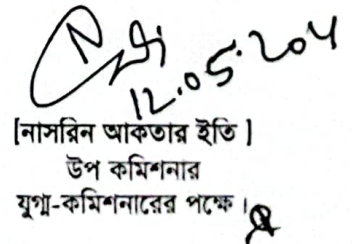 12.05.204
[নাসরিন আকতার ইতি ]
উপ কমিশনার
যুগ্ম-কমিশনারের পক্ষে।